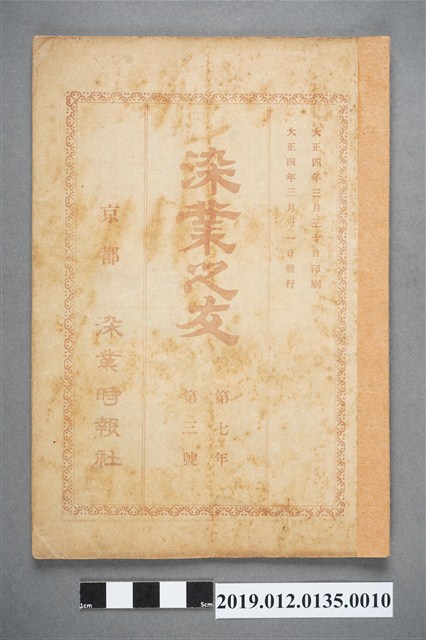 大正四年三月三十日印刷
大正四年三月卅一日發行
染業之友
第七年
第三號
京都 染業時報社
1cm 5cm
2019.012.0135.0010